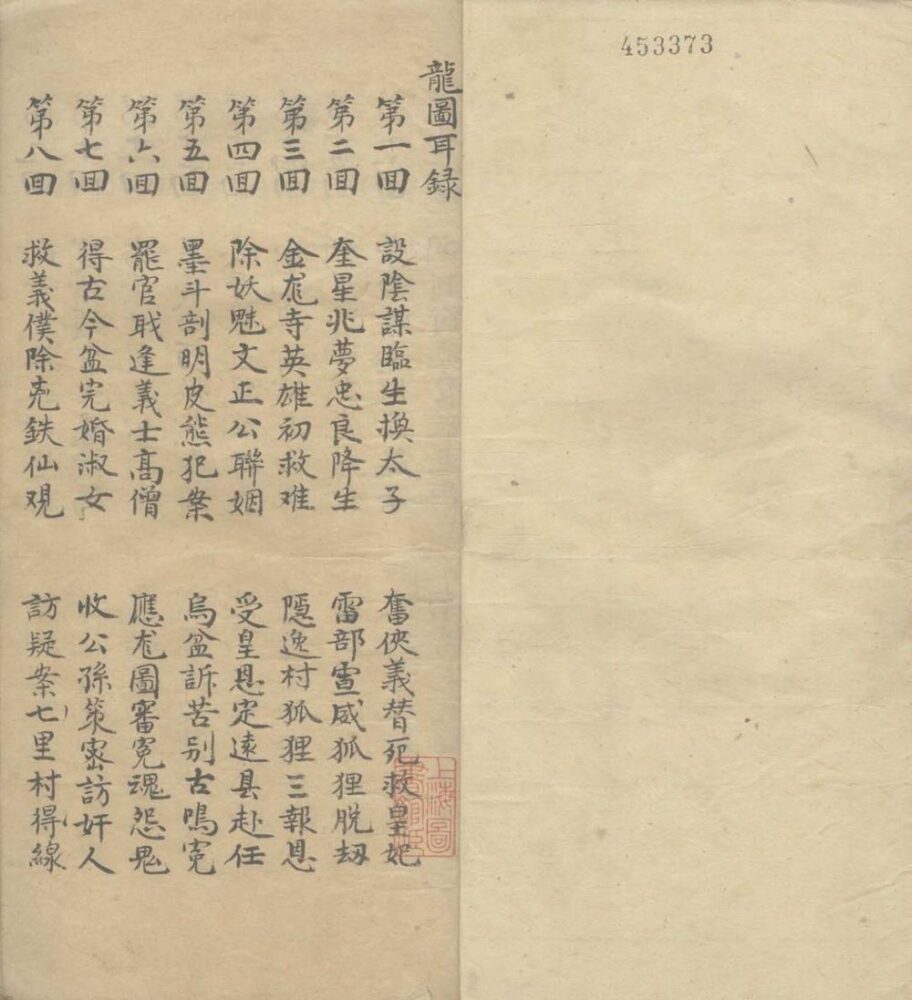 453373
龍圖耳録
第一回 設陰謀臨生換太子 奮俠義替死救皇妃
第二回 奎星兆夢忠良降生 雷部宣威狐狸脱劫
第三回 金龙寺英雄初救难 隱逸村狐狸三報恩
第四回 除妖魅文正公聯姻 受皇恩定遠县赴任
第五回 墨斗剖明皮熊犯案 烏盆訴苦别古鳴冤
第六回 罷官職逢義士高僧 應龙圖審冤魂怨鬼
第七回 得古今盆完婚淑女 收公孫策密訪奸人
第八回 救義僕除兇鉄仙观 訪疑案七里村得線
上海圖書館藏